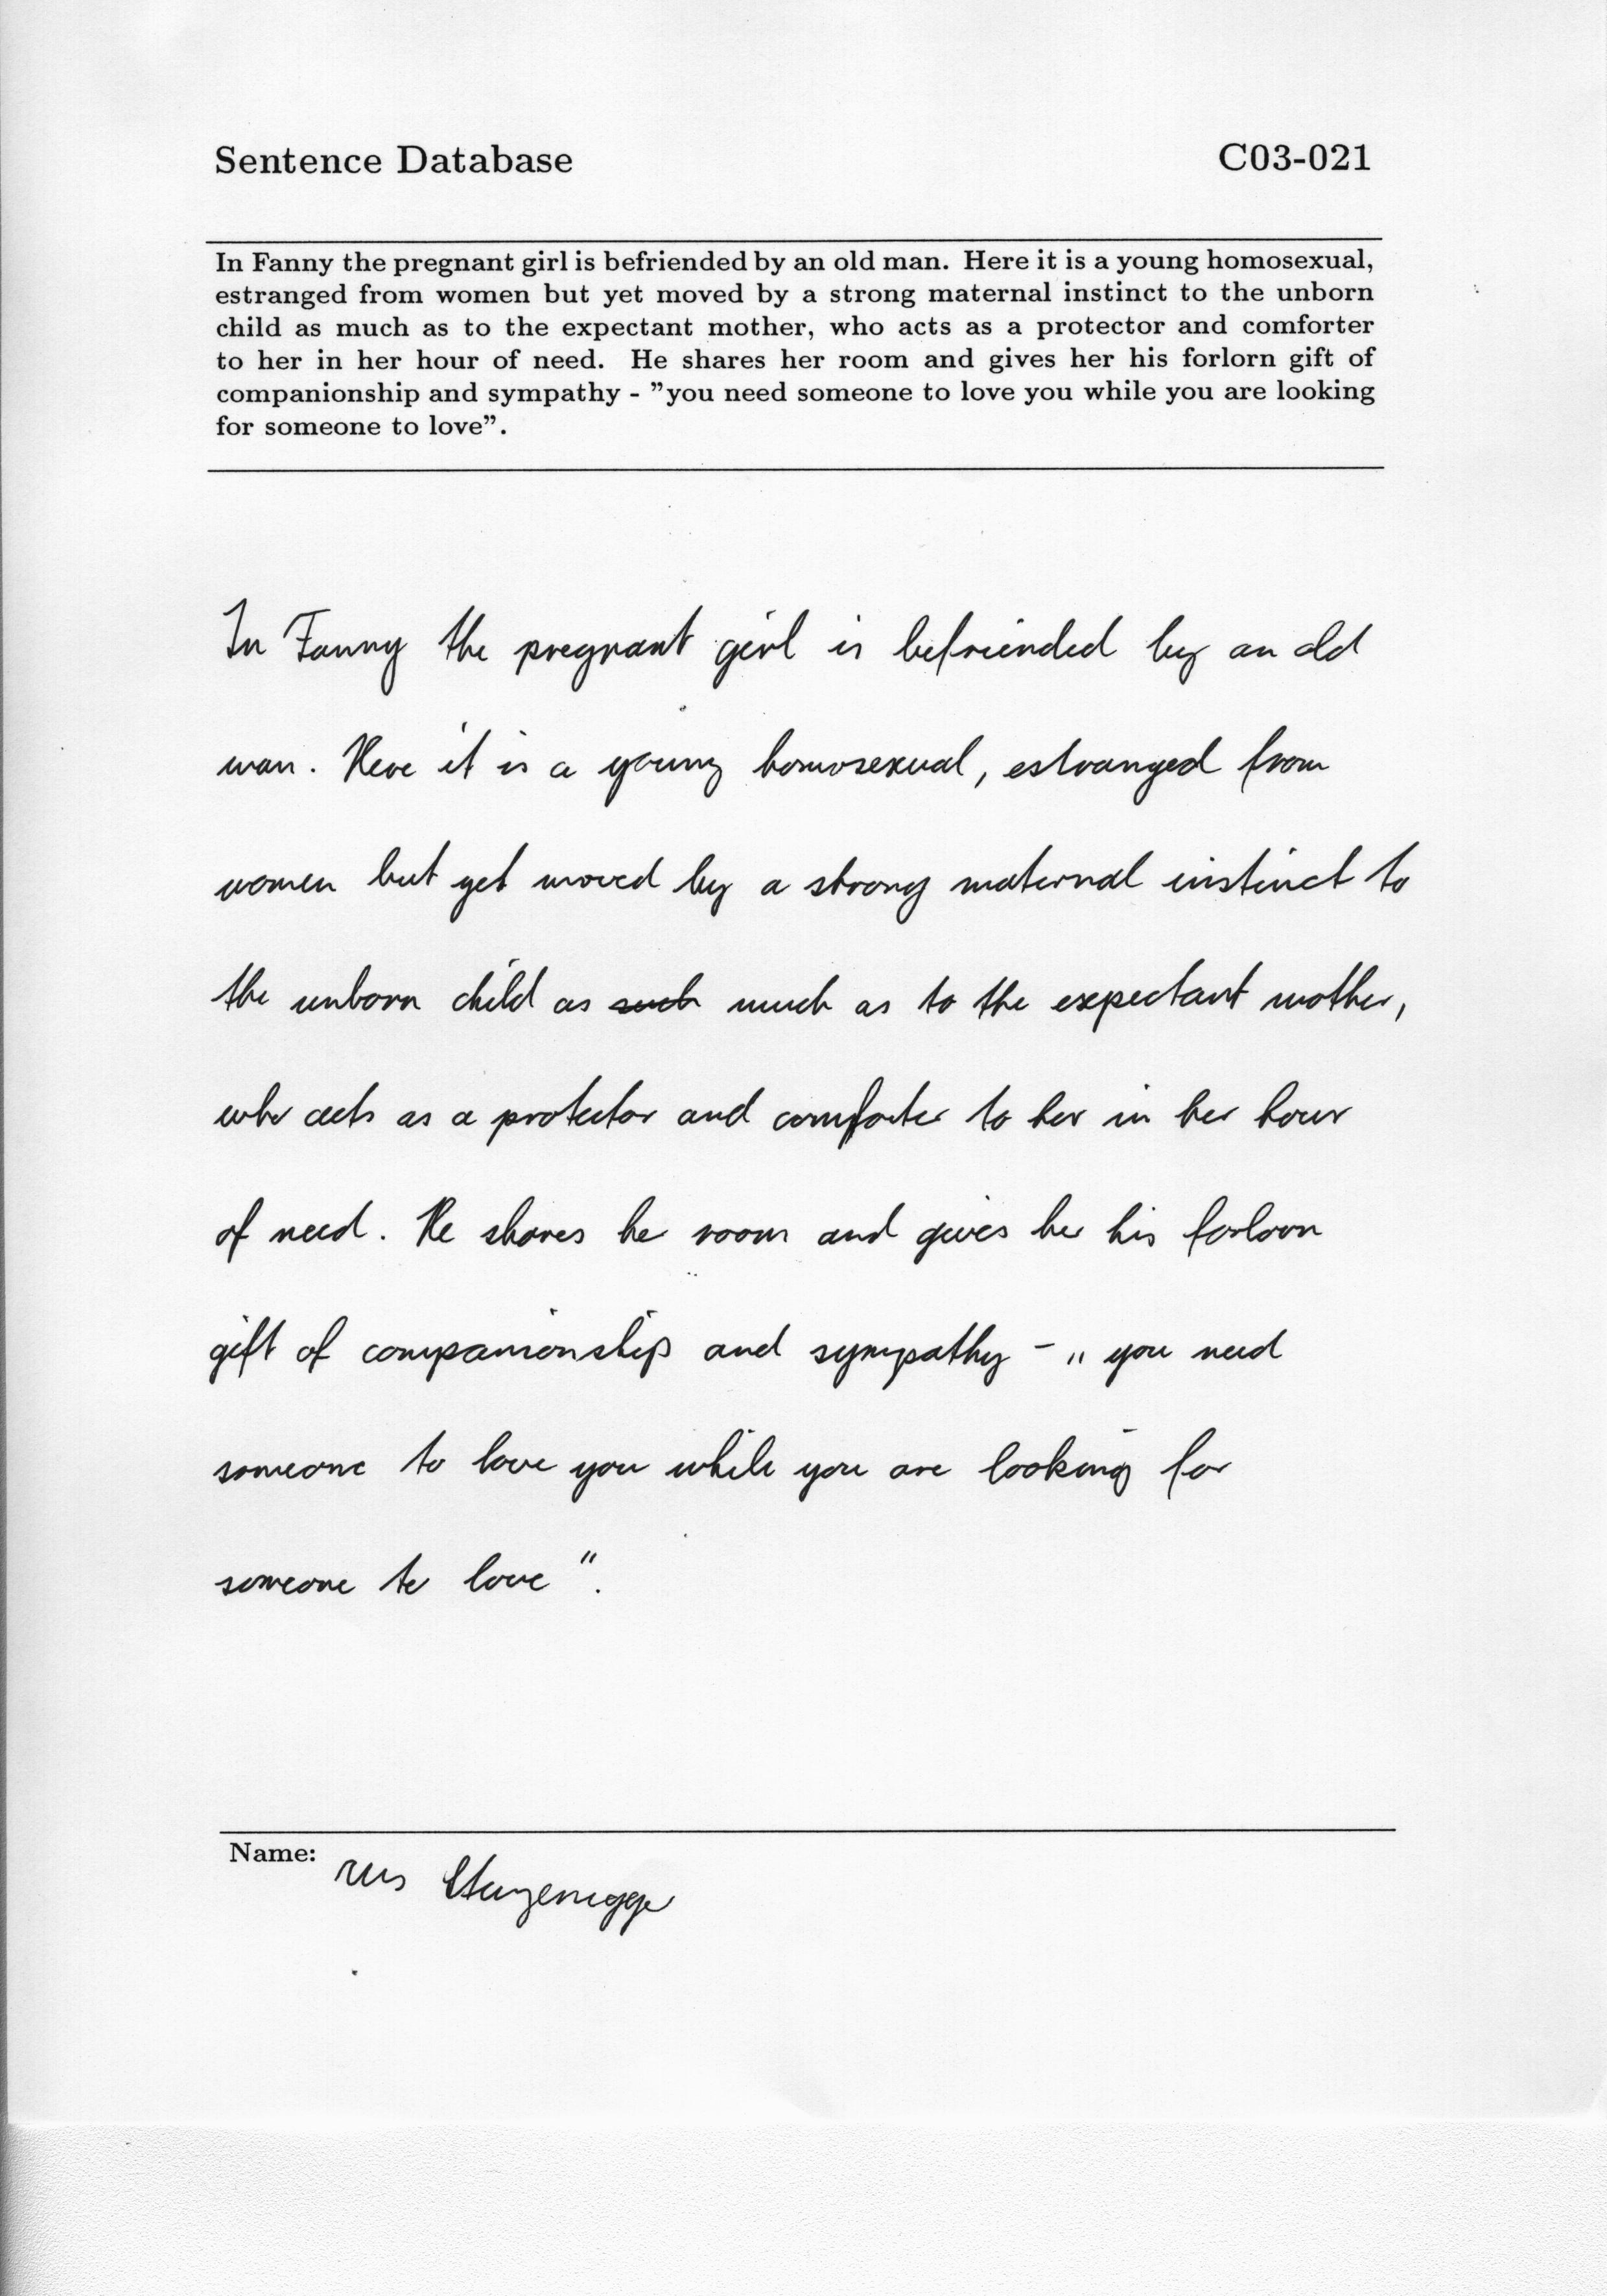 Sentence Database C03-021
In Fanny the pregnant girl is befriended by an old man. Here it is a young homosexual,
estranged from women but yet moved by a strong maternal instinct to the unborn
child as much as to the expectant mother, who acts as a protector and comforter
to her in her hour of need. He shares her room and gives her his forlorn gift of
companionship and sympathy - ”you need someone to love you while you are looking
for someone to love”.
In Fanny the pregnant girl is befriended by an old
man. Here it is a young homosexual, estranged from
women but yet moved by a strong maternal instinct to
the unborn child as such much as to the expectant mother,
who acts as a protector and comforter to her in her hour
of need. He shares her room and gives her his forlorn
gift of companionship and sympathy - „you need
someone to love you while you are looking for
someone to love“.
Name: